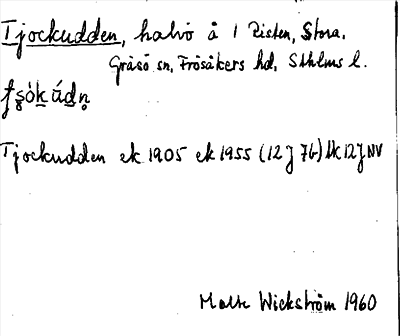 Tjockudden, halvö å 1 Risten, Stora,
Gräsö sn, Frösåkers hd, Sthlms l.
Tjockudden ek 1905 ek 1955 (12J 7b) lk 12J NV
Malte Wickström 1960